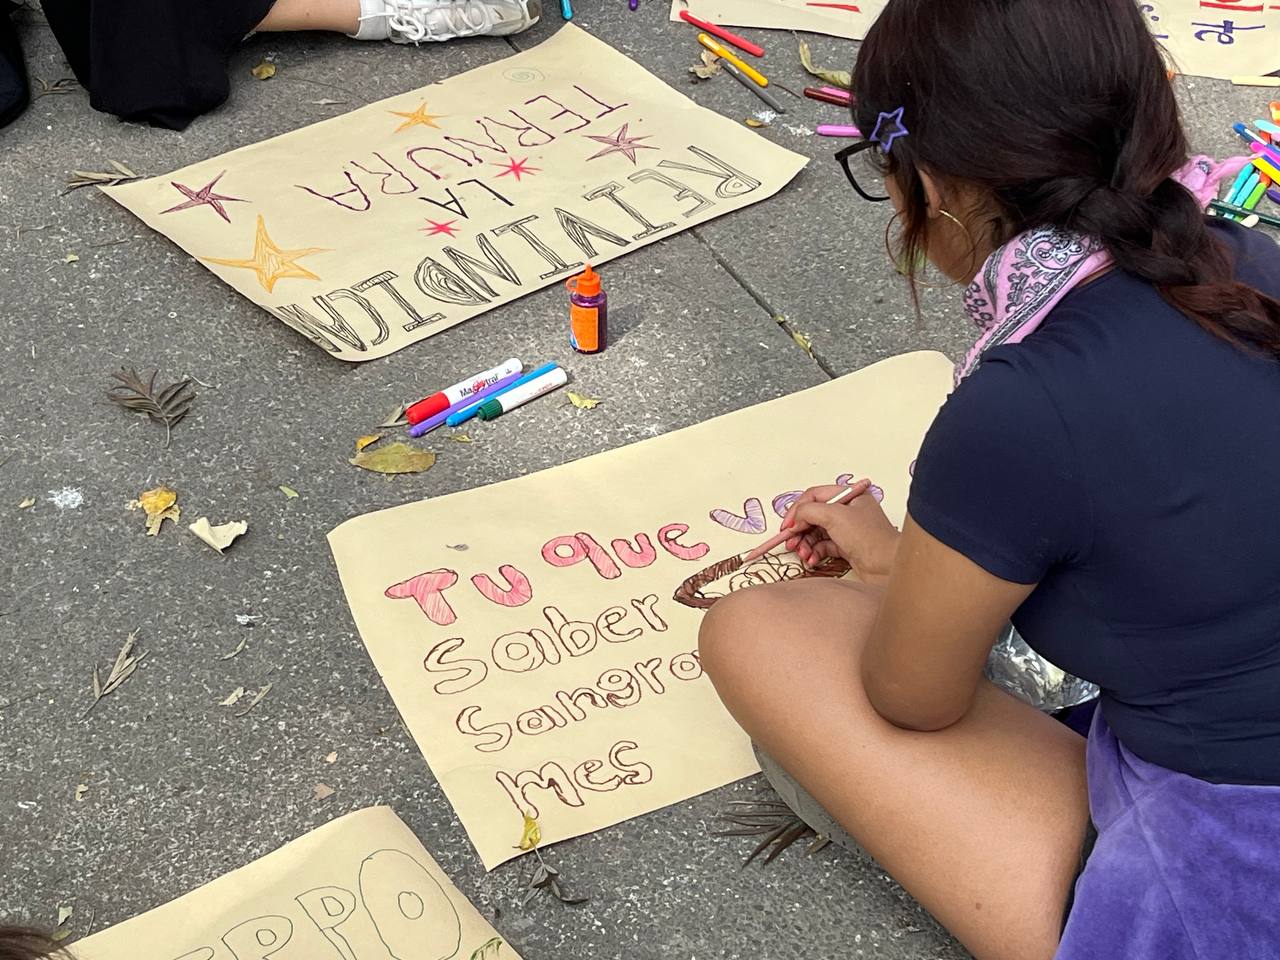 REIVINDICAR
LA
TERNURA
Magistral
Tu que vas
saber
sangra
mes
ERPO
te